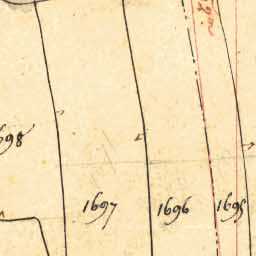 1698
1697
1696
1695